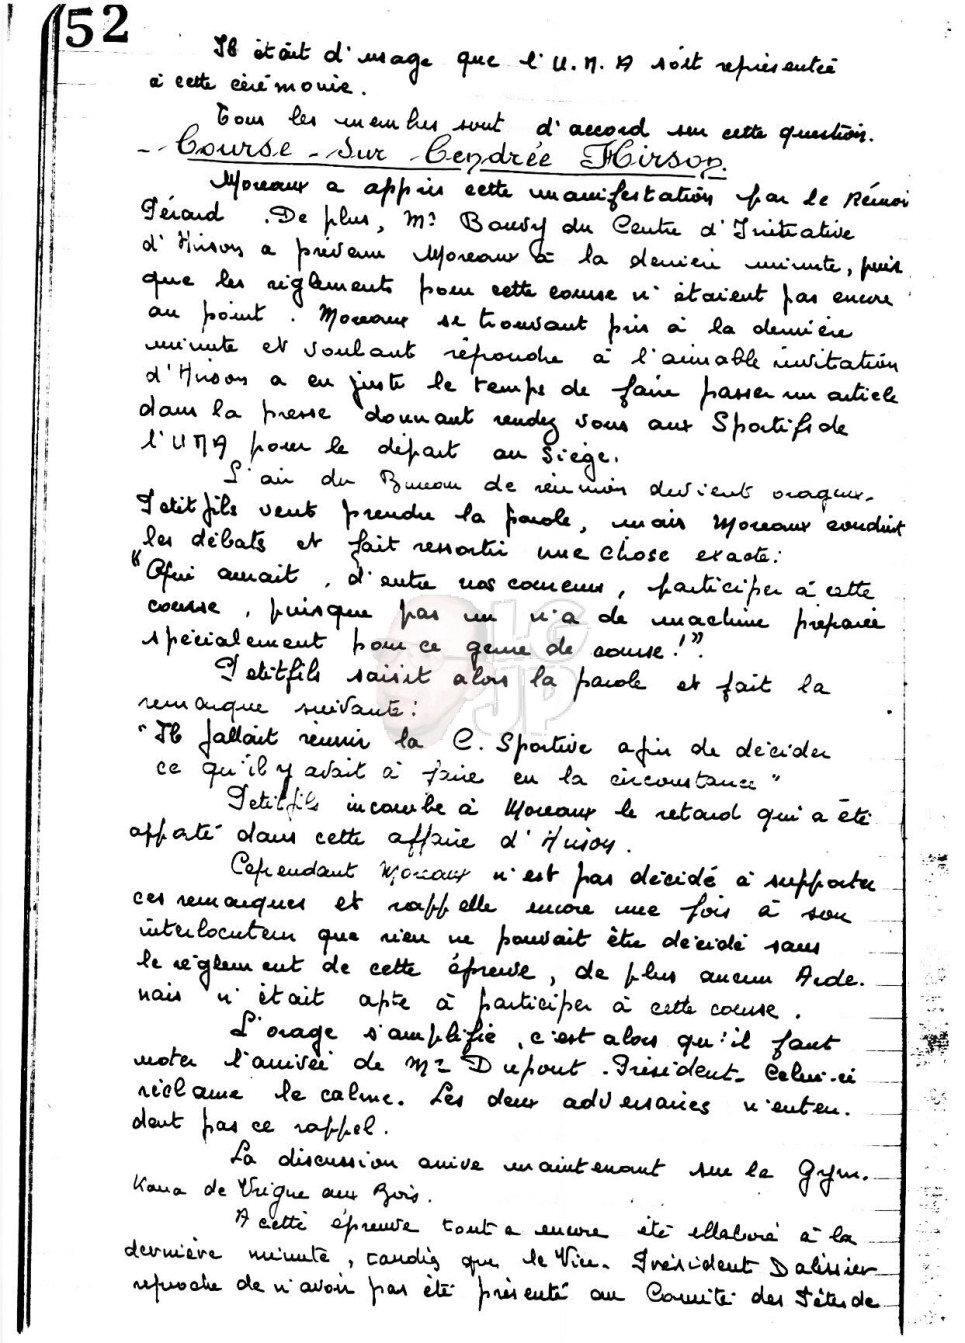 52
Il était d'usage que l'U.M.A soit représentée
à cette cérémonie.
Tous les membres sont d'accord sur cette question.
- Course - Sur - Cendrée Hirson.
Moreaux a appris cette manifestation par le Rémoi
Gérard. De plus, Mr Bawdy du Centre d'Initiative
d'Hirson a prévenu Moreaux à la dernière minute, puis
que les règlements pour cette course n'étaient pas encore
au point. Moreaux se trouvant pris à la dernière
minute et voulant répondre à l'aimable invitation
d'Hirson a eu juste le temps de faire passer un article
dans la presse donnant rendez vous aux Sportifs de
l'UMA pour le départ au Siège.
L'air du Bureau de réunion devient orageux.
Petitfils veut prendre la parole, mais Moreaux conduit
les débats et fait ressortir une chose exacte:
"Qui aurait, d'entre nos coureurs, participer à cette
course, puisque pas un n'a de machine préparée
spécialement pour ce genre de course!".
Petitfils saisit alors la parole et fait la
remarque suivante:
"Il fallait réunir la C. Sportive afin de décider
ce qu'il y avait à faire en la circonstance"
Petitfils incombe à Moreaux le retard qui a été
apporté dans cette affaire d'Hirson.
Cependant Moreaux n'est pas décidé à supporter
ces remarques et rappelle encore une fois à son
interlocuteur que rien ne pouvait être décidé sans
le règlement de cette épreuve, de plus aucun Arde.
nais n'était apte à participer à cette course.
L'orage s'amplifie, c'est alors qu'il faut
noter l'arrivée de Mr Dupont. Président. Celui-ci
réclame le calme. Les deux adversaires n'enten.
dent pas ce rappel.
La discussion arrive maintenant sur le Gym.
Kana de Vrigne aux Bois.
A cette épreuve tout a encore été ellaboré à la
dernière minute, tandis que le Vice. Président Dalissier
reproche de n'avoir pas été présenté au Comité des Fêtes de
LG
JP